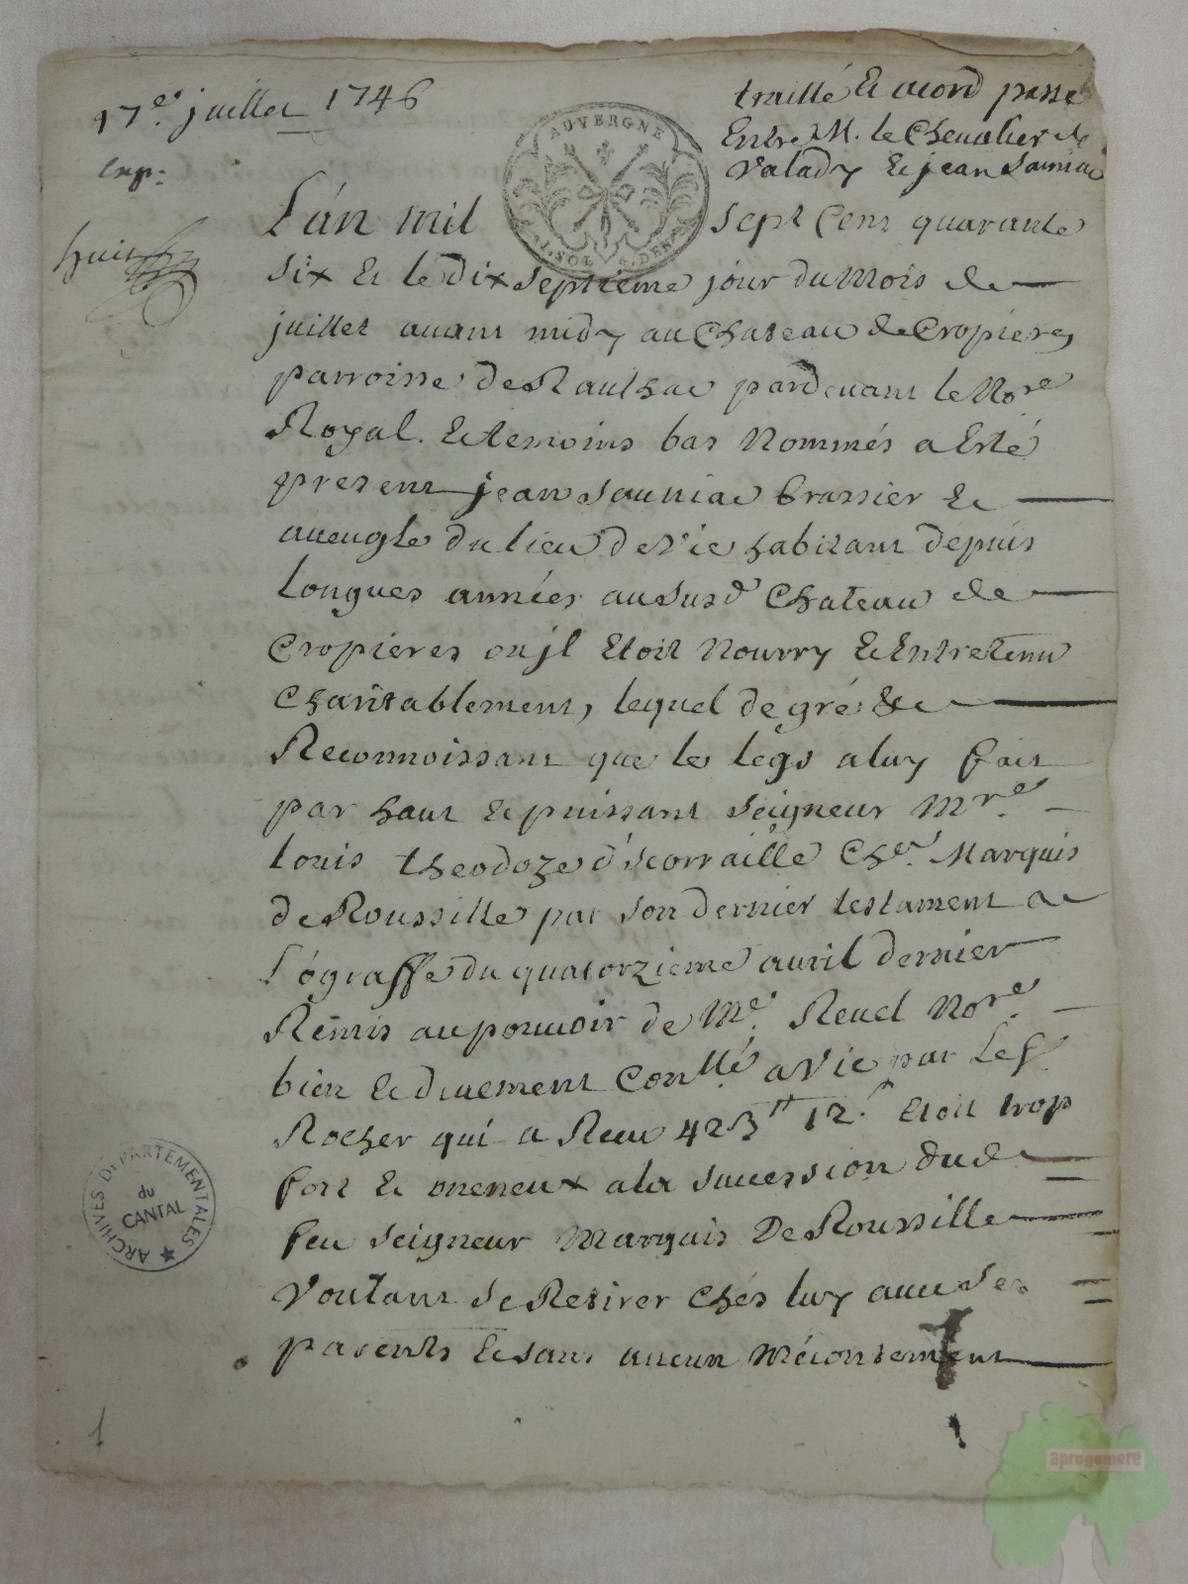 17e. juillet 1746
traitté et acord passé
Entre M. le Chevalier de
Valady et jean Sauniac
Exp:
huit
AUVERGNE
L'an mil sept Cent quarante
six et le dix septieme jour du Mois de
juillet avant midy au Chateau de Cropieres
parroisse de Raulhac pardevant le Nore
Royal. et temoins bas Nommés a Esté
present jean Sauniac brassier et
aveugle du lieu de Vic habitant depuis
longues années au susd Chateau de
Cropieres ou jl Etoit Nourry et Entretenu
Charitablement, lequel de gré &c
Reconnoissant que le legs a luy fait
par haut et puissant seigneur Mre.
louis theodoze d'scorraille Cher. Marquis
de Roussille par son dernier testament ac
l'ograffe du quatorzieme avril dernier
Remis au pouvoir de Me. Revel Nore.
bien et duement Contllé a Vic par le sr
Rocher qui a Receu 423tt 12s Etoit trop
fort et onereux a la succession dud
feu seigneur Marquis De Roussille
Voulant se Retirer chés luy avec ses
parents et sans aucun Mécontement
ARCHIVES DÉPARTEMENTALES
du
CANTAL
1
aprogemere